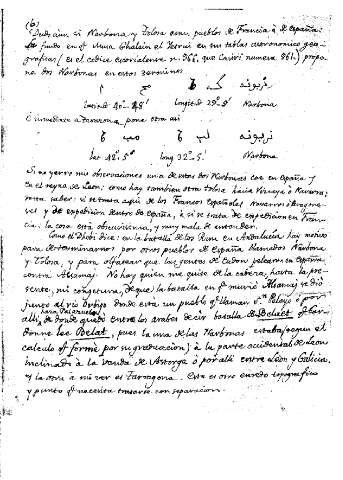 (6)
Dudo aun si Narbona y Tolosa eran pueblos de Francia ó de España
se funda en q.e Abna Ghalein el Persi en sus tablas astronomico geo-
graficas (es el codice escurialense n. 966, que Casiri numera 961) propo-
ne dos Narbonas en estos terminos
نربونه
latitud 40°-48' longitud 29°-8' Narbona
É inmediata a Tarazona pone otra asi
نربونه
lat 42°.5° long 32°-5' Narbona
Si no yerro mis observaciones una de estas dos Narbonas cae en España y
en el reyno de Leon: como hay tambien otra Tolosa hacia Vizcaya ó Navarra:
resta saber: si se trata aqui de los Francos Españoles Navarros ó Aragone-
ses y de expedicion dentro de España, ó si se trata de expedicion en Fran-
cia: la cosa está obscurisima, y muy mala de entender.
Como el Dhobi dice: en la batalla de los Rum en Andalucia hay motivo
para determinarnos por otros pueblos de España llamados Narbona
y Tolosa, y para olfatear que las gentes de Eudon pelearon en España
contra Alsamaj. No hay quien me quite de la cabeza, hasta la pre-
sente, mi congetura, de que la batalla en q.e murio Alsamaj se dió
junto al rio Orbigo donde esta un pueblo q.e llaman S.n Pelayo ó por
allí, de donde quedó entre los arabes decir batalla de Belaet ó Car-
donne lee Belat, pues la una de las Narbonas estaba (segun el
calculo q.e formé por su graduacion) á la parte occidental de Leon
inclinada á la vanda de Astorga ó por allí entre Leon y Galicia.
Y la otra á mi ver es Tarragona. Esta es otro enredo topografico
y punto q.e necesita tratarse con separacion.